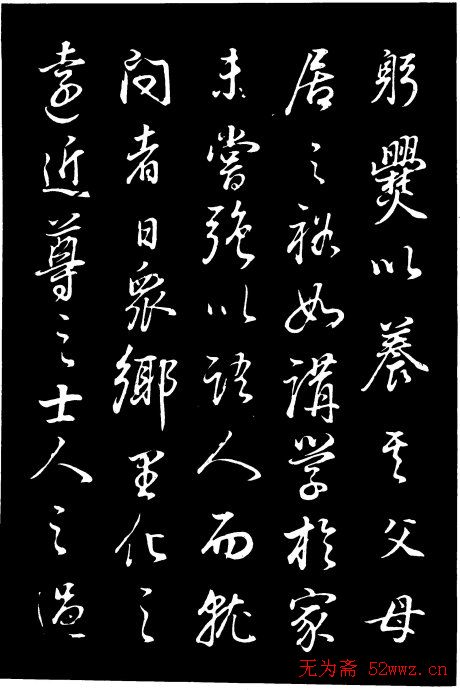 躬爨以養其父母
居之裕如講學於家
未嘗強以語人而就
問者日衆鄉里化之
遠近尊之士人之
无为斋 52wwz.cn